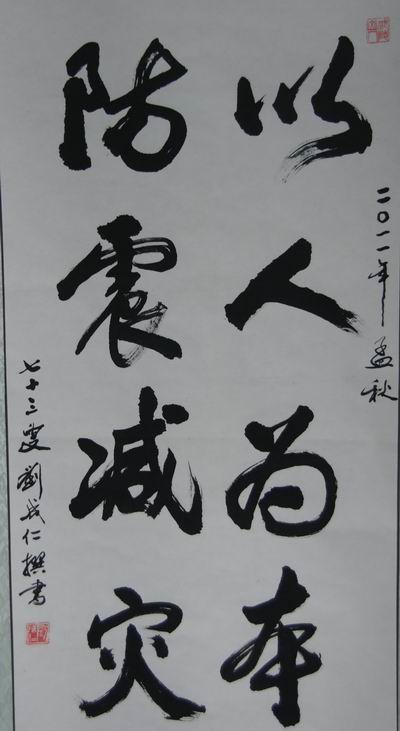 二〇一一年孟秋
以人为本
防震减灾
七十三叟刘成仁撰书